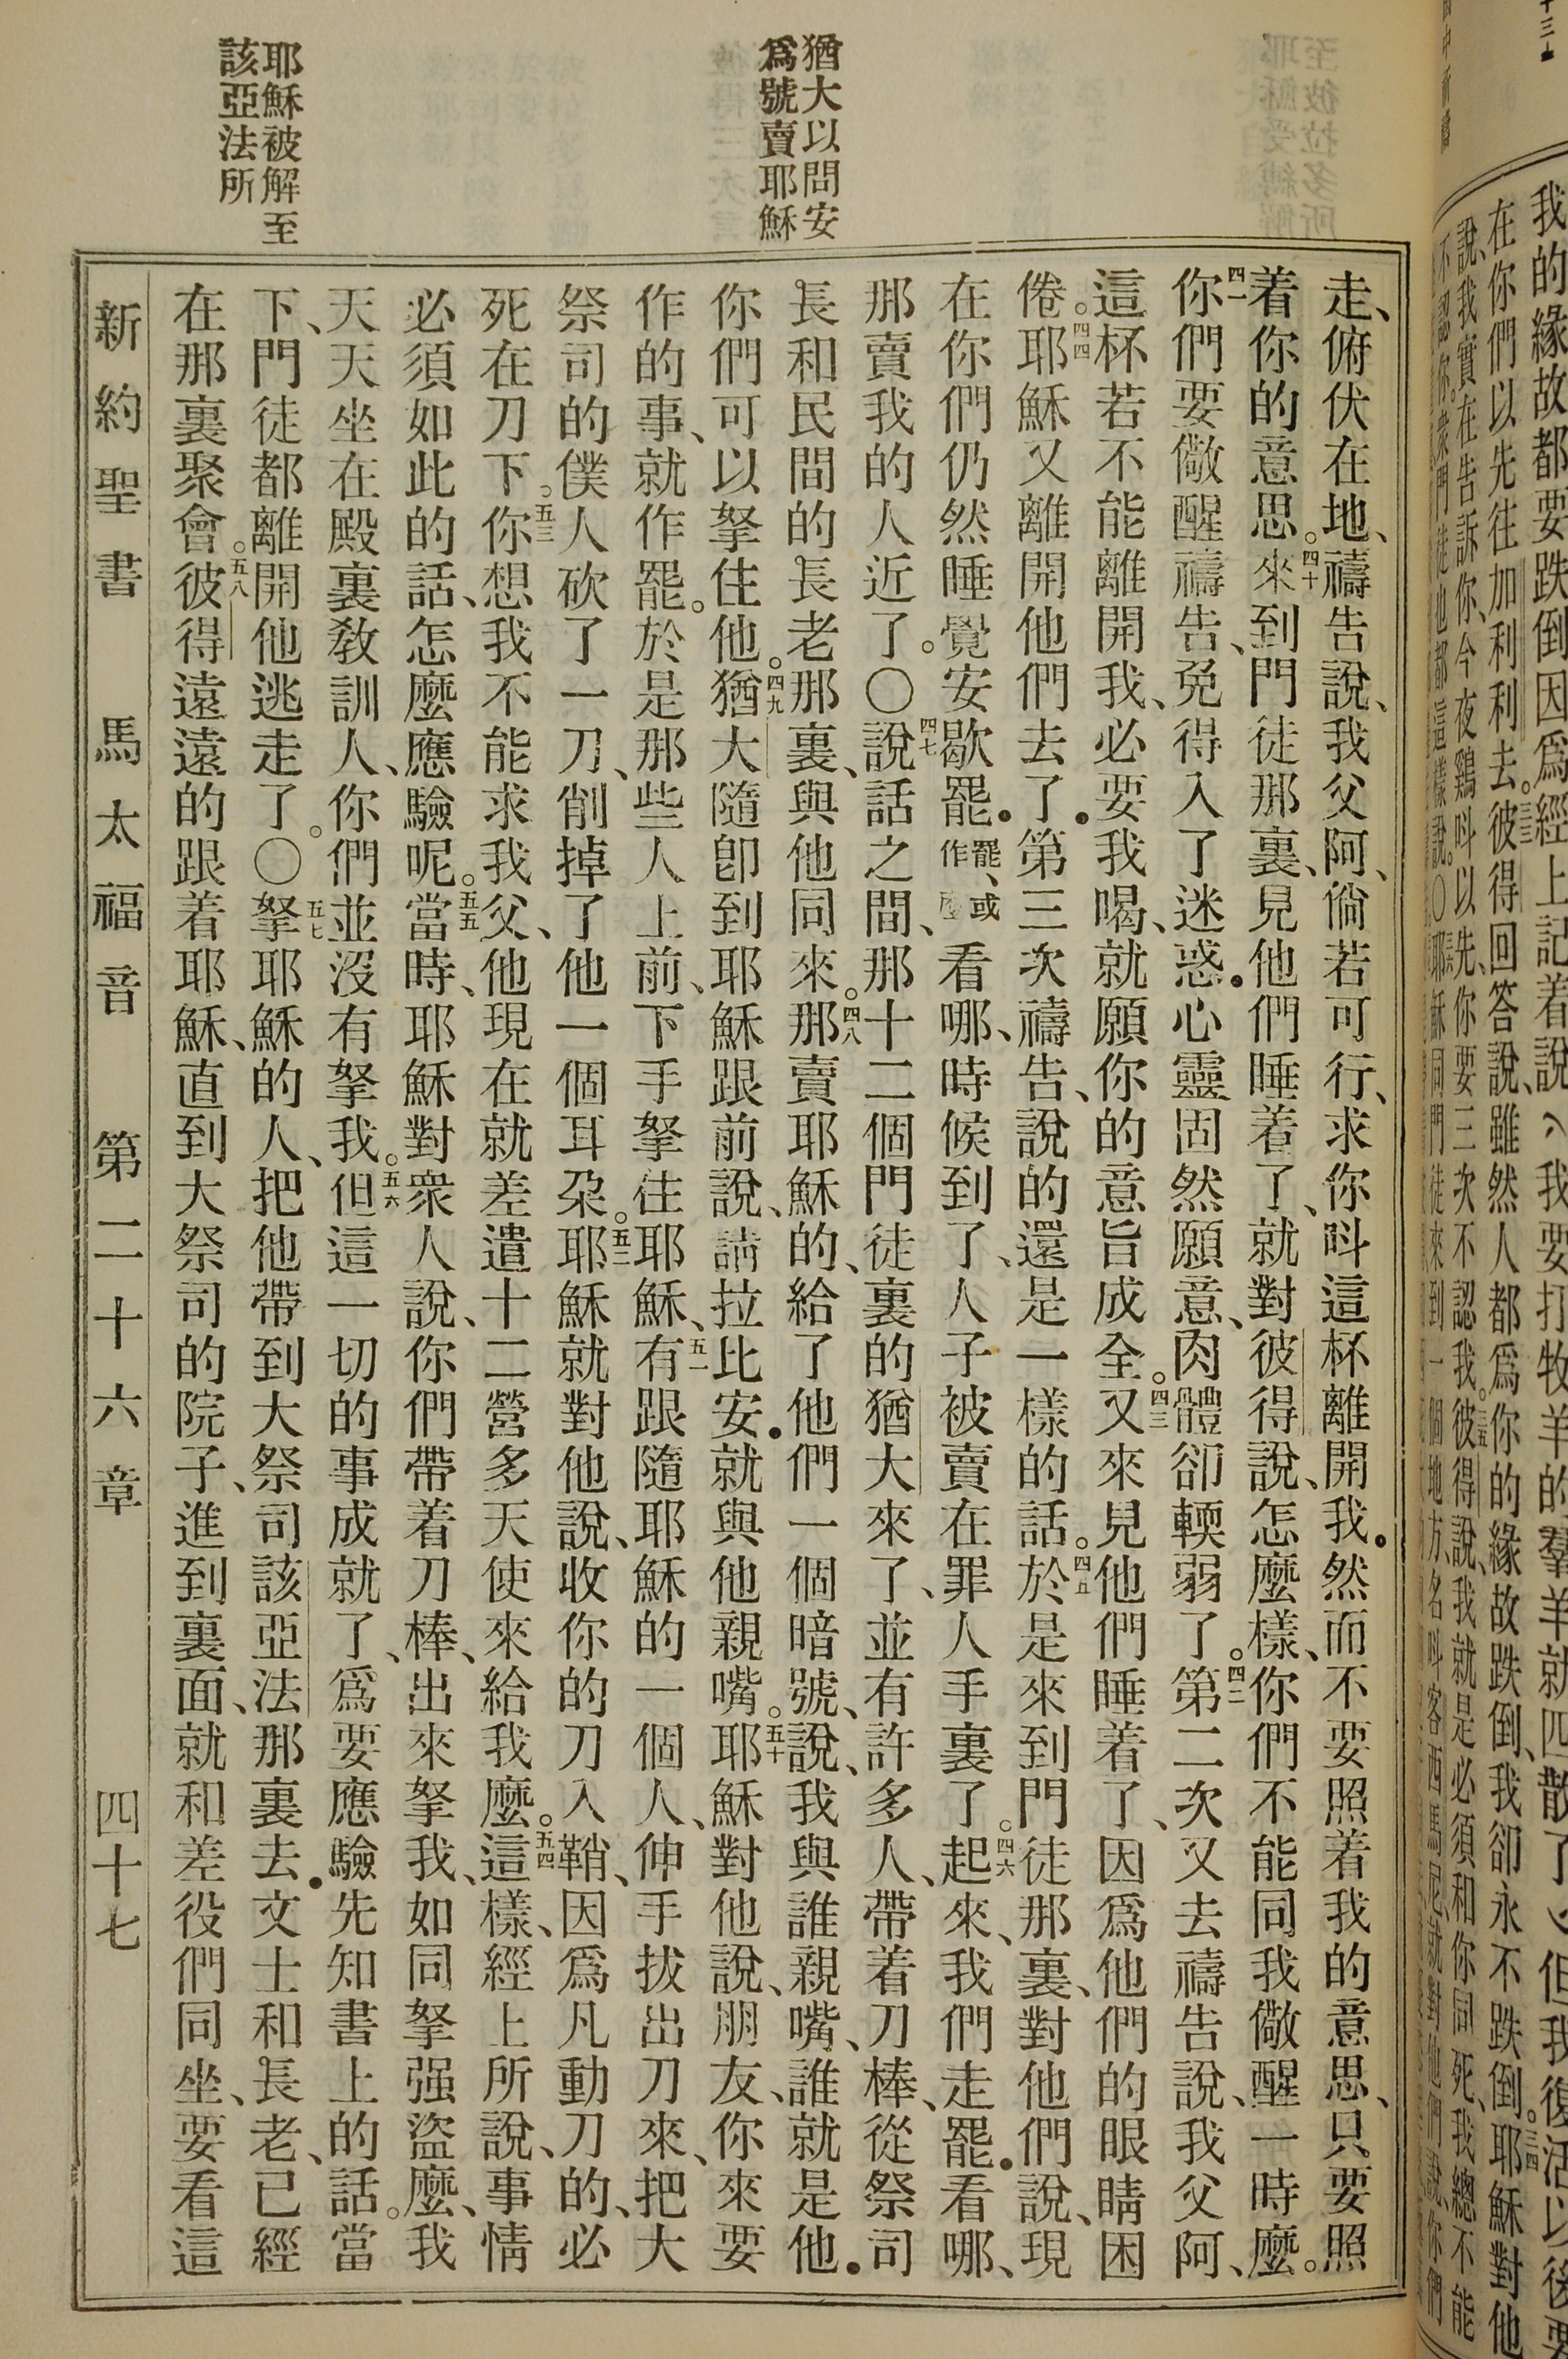 我的緣故都要跌倒因爲經上記着說、我要打牧羊的羣羊就四散了、但我復活以後要
在你們以先往加利利去。三三彼得回答說、雖然人都爲你的緣故跌倒、我卻永不跌倒。三四耶穌對他
說、我實在告訴你、今夜鷄呌以先、你要三次不認我。三五彼得說、我就是必須和你同死、我總不能
不認你。衆門徒也都這樣說。〇耶穌同門徒來到一個地方、名呌客西馬尼、就對他們說、你們
猶大以問安
爲號賣耶穌
耶穌被解至
該亞法所
走、俯伏在地、禱告說、我父阿、倘若可行、求你呌這杯離開我.然而不要照着我的意思、只要照
着你的意思。四十來到門徒那裏、見他們睡着了、就對彼得說、怎麼樣、你們不能同我儆醒一時麼。
四一你們要儆醒禱告、免得入了迷惑.心靈固然願意、肉體卻輭弱了。四二第二次又去禱告說、我父阿、
這杯若不能離開我、必要我喝、就願你的意旨成全。四三又來見他們睡着了、因爲他們的眼睛困
倦。四四耶穌又離開他們去了.第三次禱告、說的還是一樣的話。四五於是來到門徒那裏、對他們說、現
在你們仍然睡覺安歇罷.罷、或作看哪、時候到了、人子被賣在罪人手裏了。四六起來、我們走罷.看哪、
那賣我的人近了。〇四七說話之間、那十二個門徒裏的猶大來了、並有許多人、帶着刀棒、從祭司
長和民間的長老那裏、與他同來。四八那賣耶穌的、給了他們一個暗號、說、我與誰親嘴、誰就是他.
你們可以拏住他。四九猶大隨卽到耶穌跟前說、請拉比安.就與他親嘴。五十耶穌對他說、朋友、你來要
作的事、就作罷。於是那些人上前、下手拏住耶穌、五一有跟隨耶穌的一個人、伸手拔出刀來、把大
祭司的僕人砍了一刀、削掉了他一個耳朶。五二耶穌就對他說、收你的刀入鞘、因爲凡動刀的、必
死在刀下。五三你想我不能求我父、他現在就差遣十二營多天使來給我麼。五四這樣、經上所說、事情
必須如此的話、怎麼應驗呢。五五當時、耶穌對衆人說、你們帶着刀棒、出來拏我、如同拏强盜麼、我
天天坐在殿裏敎訓人、你們並沒有拏我。五六但這一切的事成就了、爲要應驗先知書上的話。當
下、門徒都離開他逃走了。〇五七拏耶穌的人、把他帶到大祭司該亞法那裏去.文士和長老、已經
在那裏聚會。五八彼得遠遠的跟着耶穌、直到大祭司的院子、進到裏面、就和差役們同坐、要看這
新約聖書 馬太福音 第二十六章 四十七